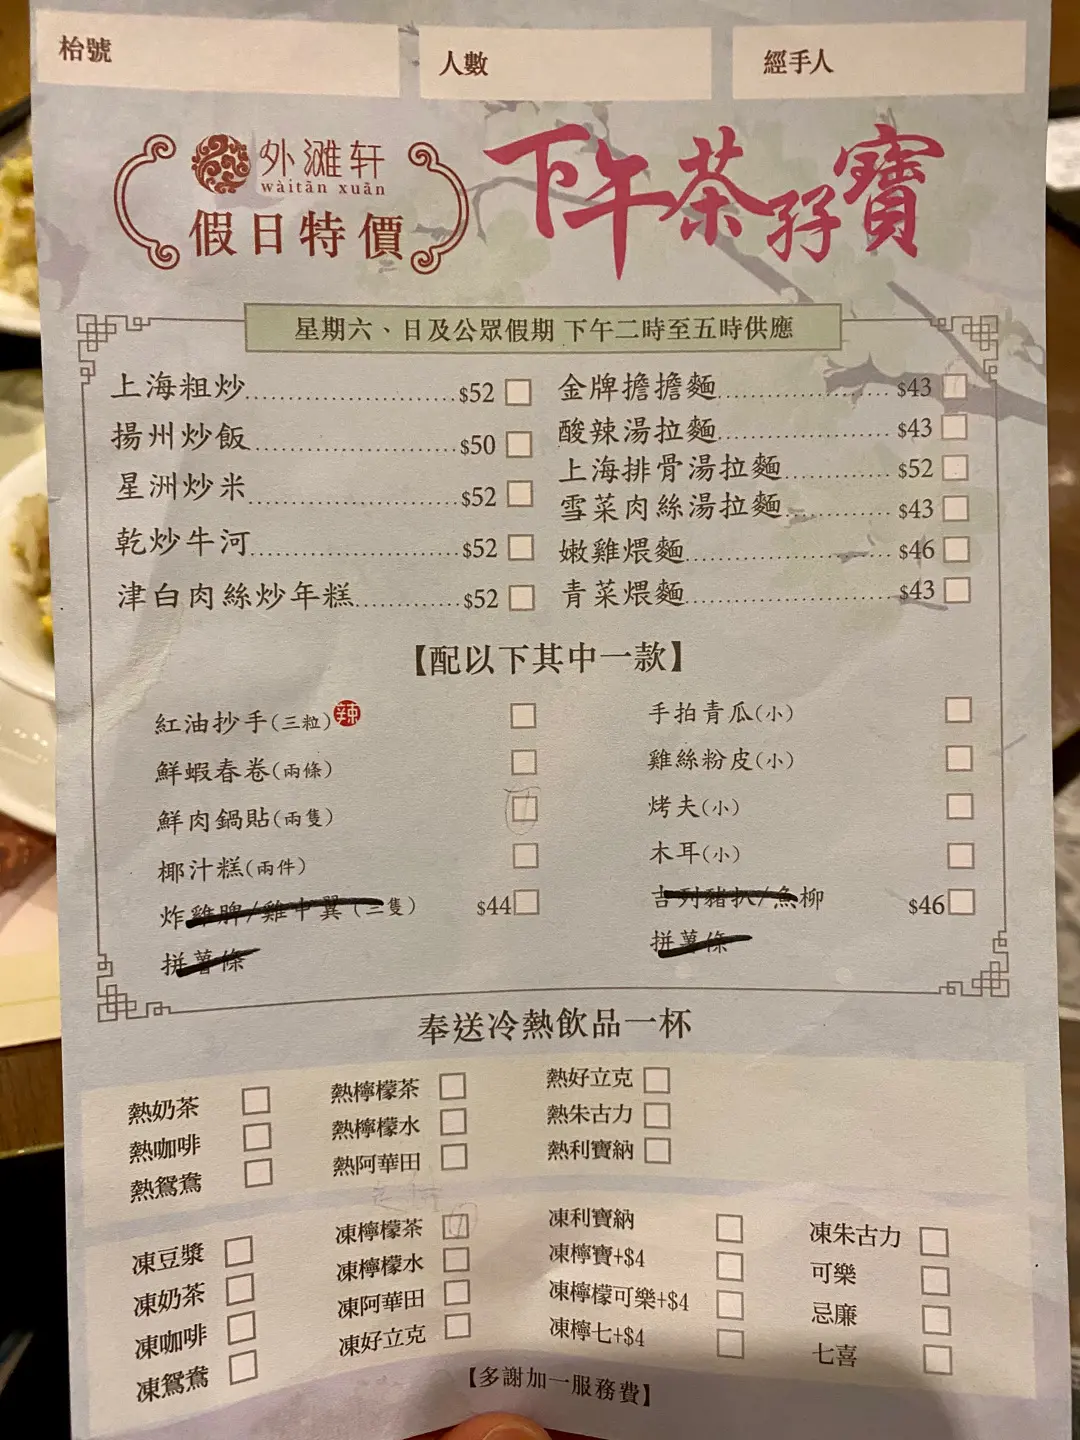 枱號
人數
經手人
外滩轩
wàitān xuān
假日特價
下午茶孖寶
星期六、日及公眾假期 下午二時至五時供應
上海粗炒 $52
揚州炒飯 $50
星洲炒米 $52
乾炒牛河 $52
津白肉絲炒年糕 $52
金牌擔擔麵 $43
酸辣湯拉麵 $43
上海排骨湯拉麵 $52
雪菜肉絲湯拉麵 $43
嫩雞煨麵 $46
青菜煨麵 $43
【配以下其中一款】
紅油抄手(三粒)辣
鮮蝦春卷(兩條)
鮮肉鍋貼(兩隻)
椰汁糕(兩件)
炸雞脾/雞中翼(三隻) $44
拼薯條
手拍青瓜(小)
雞絲粉皮(小)
烤夫(小)
木耳(小)
吉列豬扒/魚柳 $46
拼薯條
奉送冷熱飲品一杯
熱奶茶
熱咖啡
熱鴛鴦
熱檸檬茶
熱檸檬水
熱阿華田
熱好立克
熱朱古力
熱利賓納
凍豆漿
凍奶茶
凍咖啡
凍鴛鴦
凍檸檬茶
凍檸檬水
凍阿華田
凍好立克
凍利賓納
凍檸寶+$4
凍檸檬可樂+$4
凍檸七+$4
凍朱古力
可樂
忌廉
七喜
【多謝加一服務費】